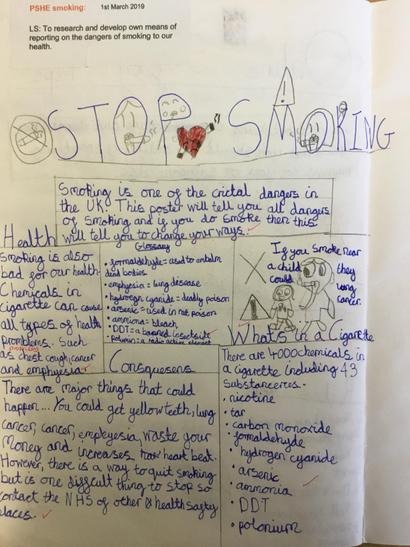 PSHE smoking: 1st March 2019
LS: To research and develop own means of
reporting on the dangers of smoking to our
health.
STOP SMOKING
Smoking is one of the crictal dangers in
the UK. This poster will tell you all dangers
of smoking and if you do smoke then this
will tell you to change your ways.
Health
Smoking is also
bad for our health
Chemicals in
cigarette can cause
all types of health
promblems. Such
as chest cough, cancer
and emphyesia
Glossary
• formaldehyde = used to embalm
dead bodies
• emphyesia = lung disease
• hydrogen cyanide = deadly poison
• arsenic = used in rat poison
• ammonia = bleach
• DDT = a banned insectsite
• Polonium = a radio active element
If you smoke near
a child they
could lung
cancer.
Consquesens
There are major things that could
happen... You could get yellow teeth, lung
cancer, cancer, empleyesia, waste your
money and increases heart beat.
However, there is a way to quit smoking
but is one difficult thing to stop so
contact the NHS of other health
places.
What's in a Cigarette
There are 4000 chemicals in
a cigarette including 43
• nicotine
• tar
• carbon monoxide
• formaldehyde
• hydrogen cyanide
• arsenic
• ammonia
• DDT
• polonium